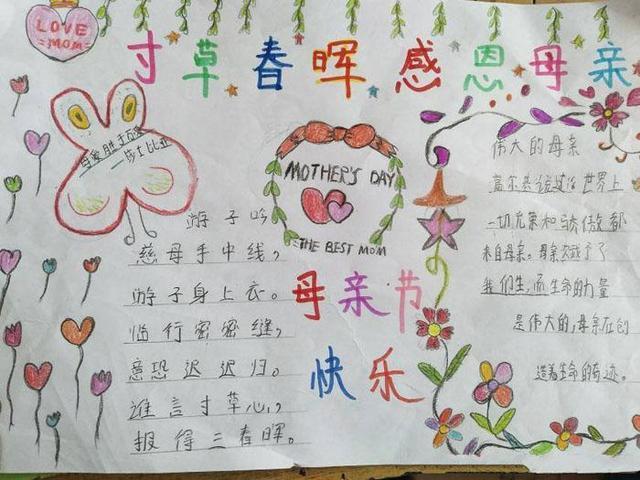 LOVE
MOM
寸草春晖 感恩母亲
母爱胜于
——莎士比亚
MOTHER'S DAY
THE BEST MOM
母亲节
快乐
游子吟
慈母手中线，
游子身上衣。
临行密密缝，
意恐迟迟归。
谁言寸草心，
报得三春晖。
伟大的母亲
高尔基说过：世界上
一切光荣和骄傲都
来自母亲。母亲赋予了
我们生，而生命的力量
是伟大的，母亲在创
造着生命的奇迹。